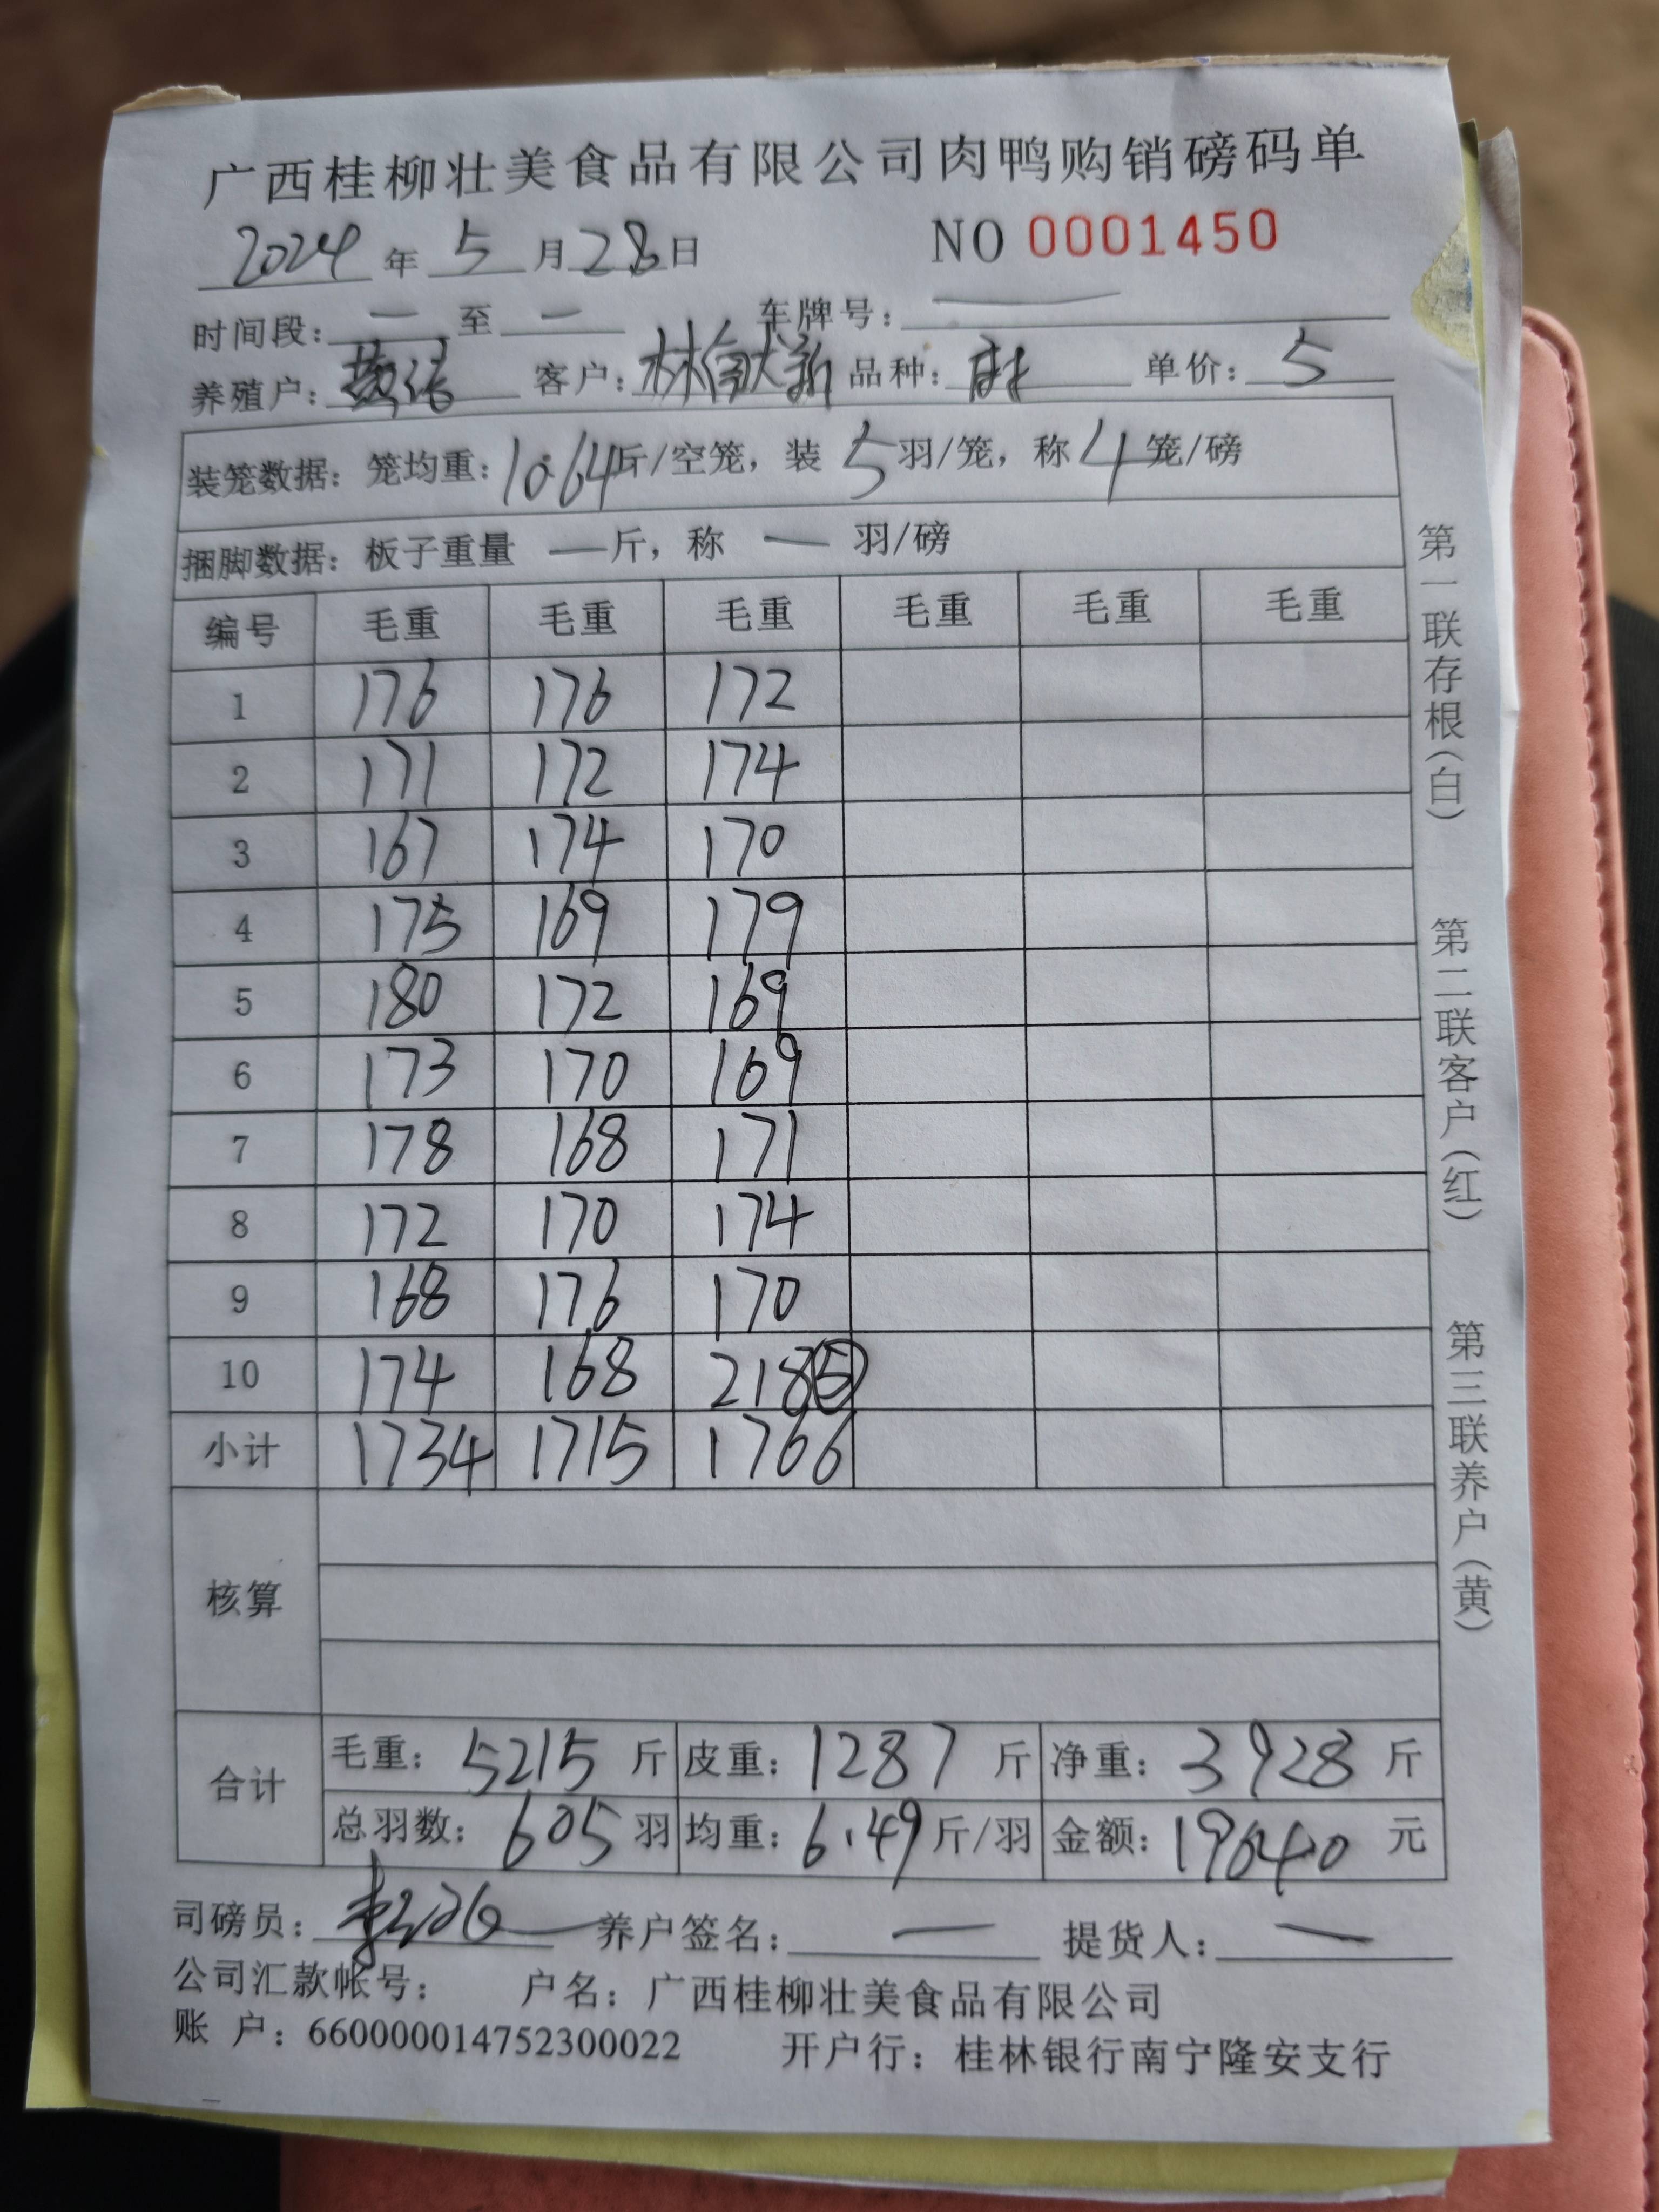 广西桂柳壮美食品有限公司肉鸭购销磅码单
2024年5月28日 NO 0001450
时间段：一至一 车牌号：——
养殖户： 客户：林 新 品种：麻 单价：5
装笼数据：笼均重：10.64斤/空笼，装5羽/笼，称4笼/磅
捆脚数据：板子重量 —斤，称 — 羽/磅
编号 毛重 毛重 毛重 毛重 毛重 毛重
1 176 176 172
2 171 172 174
3 167 174 170
4 175 169 179
5 180 172 169
6 173 170 169
7 178 168 171
8 172 170 174
9 168 176 170
10 174 168 218⑤
小计 1734 1715 1766
核算
合计 毛重：5215斤 皮重：1287斤 净重：3928斤
总羽数：605羽 均重：6.49斤/羽 金额：19640元
司磅员： 养户签名：— 提货人：—
公司汇款帐号： 户名：广西桂柳壮美食品有限公司
账 户：660000014752300022 开户行：桂林银行南宁隆安支行
第一联存根（白） 第二联客户（红） 第三联养户（黄）